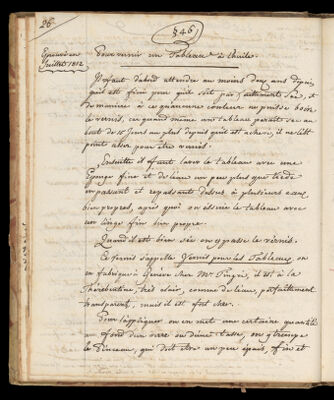 26.
§46
Epreuvé en
Juillet 1812
Pour vernir un Tableau à l'huile.
Il faut d'abord attendre au moins deux ans depuis
qu'il est fini pour qu'il soit parfaitement sec, et
de manière à ce qu'aucune couleur ne puisse boire
le vernis, car quand même un tableau paroit sec au
bout de 15 jours au plus depuis qu'il est achevé, il ne l'est
point assez pour être vernis.
Ensuite il faut laver le tableau avec une
Eponge fine et de l'eau un peu plus que tiède
en passant et repassant dessus à plusieurs eaux
bien propres, après quoi on essuie le tableau avec
un linge fin bien propre.
Quand il est bien sec on y passe le vernis.
Ce vernis s'appelle Vernis pour les Tableaux, on
en fabrique à Genève chez Mr. Pingré, il est à la
Thérébentine, très clair, comme de l'eau, parfaitement
transparent, mais il est fort cher.
Pour l'appliquer on en met une certaine quantité
au fond d'un verre ou d'une tasse, on y trempe
le Pinceau, qui doit être un peu épais, fin et